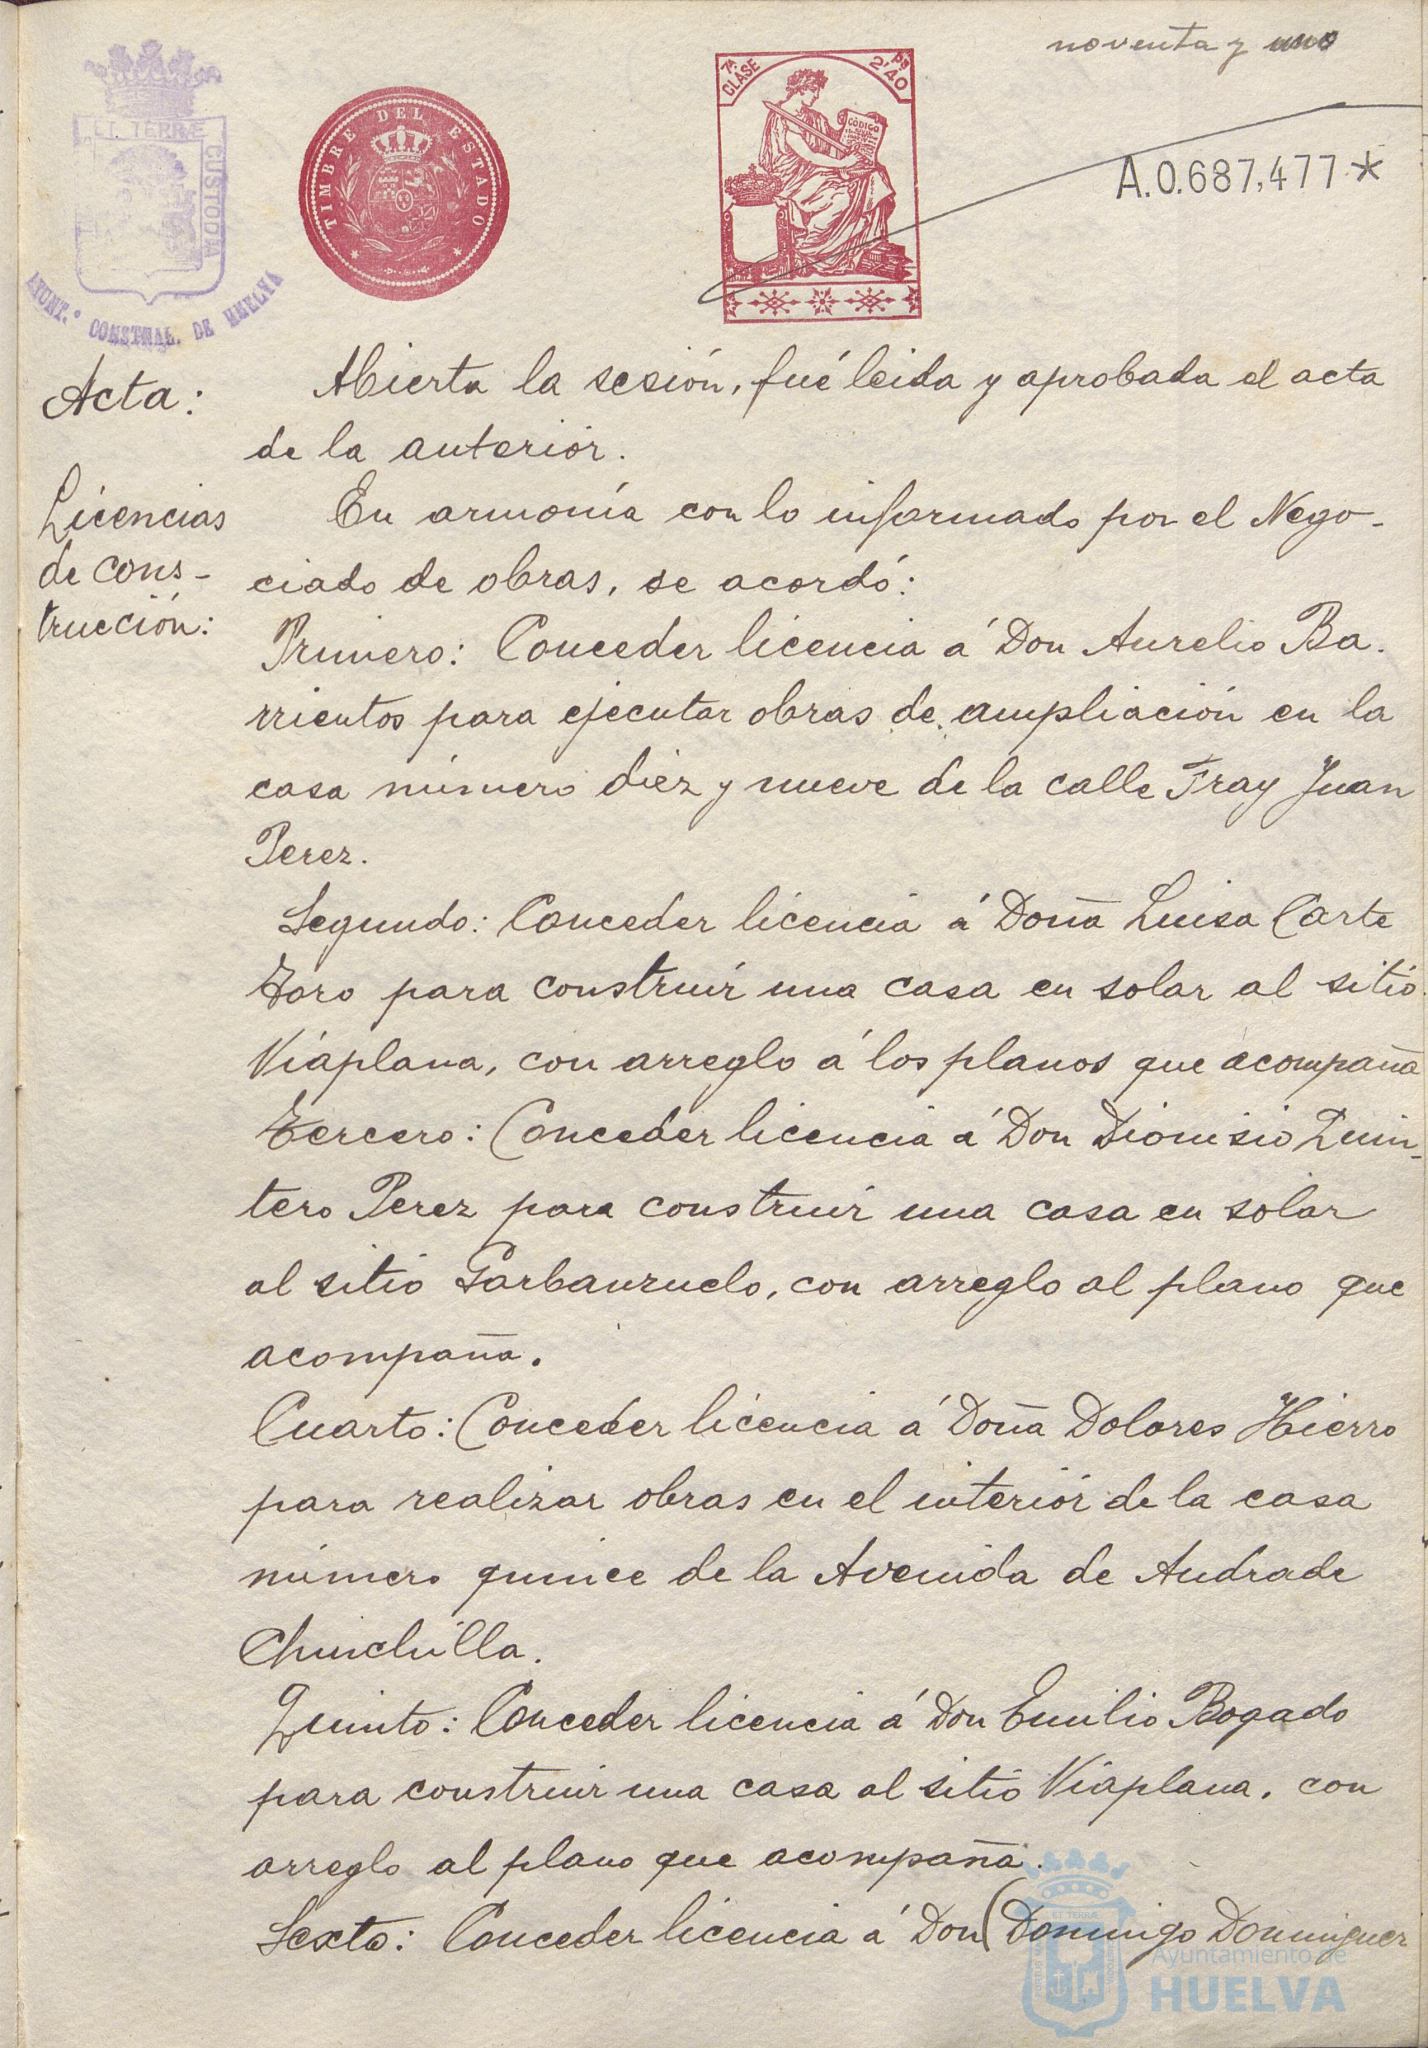 noventa y uno
ET TERRÆ CUSTODIA
AYUNT.º CONSTNAL. DE HUELVA
TIMBRE DEL ESTADO
7ª CLASE
Ps 2'40
CÓDIGO
A.0.687,477*
Acta:
Abierta la sesión, fué leida y aprobada el acta
de la anterior.
Licencias
de cons-
trucción:
En armonía con lo informado por el Nego-
ciado de obras, se acordó:
Primero: Conceder licencia á Don Aurelio Ba-
rrientos para ejecutar obras de ampliación en la
casa número diez y nueve de la calle Fray Juan
Perez.
Segundo: Conceder licencia á Doña Luisa Carte
Toro para construir una casa en solar al sitio
Viaplana, con arreglo á los planos que acompaña
Tercero: Conceder licencia á Don Dionisio Quin-
tero Perez para construir una casa en solar
al sitio Garbanzuelo, con arreglo al plano que
acompaña.
Cuarto: Conceder licencia á Doña Dolores Hierro
para realizar obras en el interior de la casa
número quince de la Avenida de Andrade
Chinchilla.
Quinto: Conceder licencia á Don Emilio Bogado
para construir una casa al sitio Viaplana, con
arreglo al plano que acompaña.
Sexto: Conceder licencia á Don (Domingo Dominguez
Ayuntamiento de
HUELVA